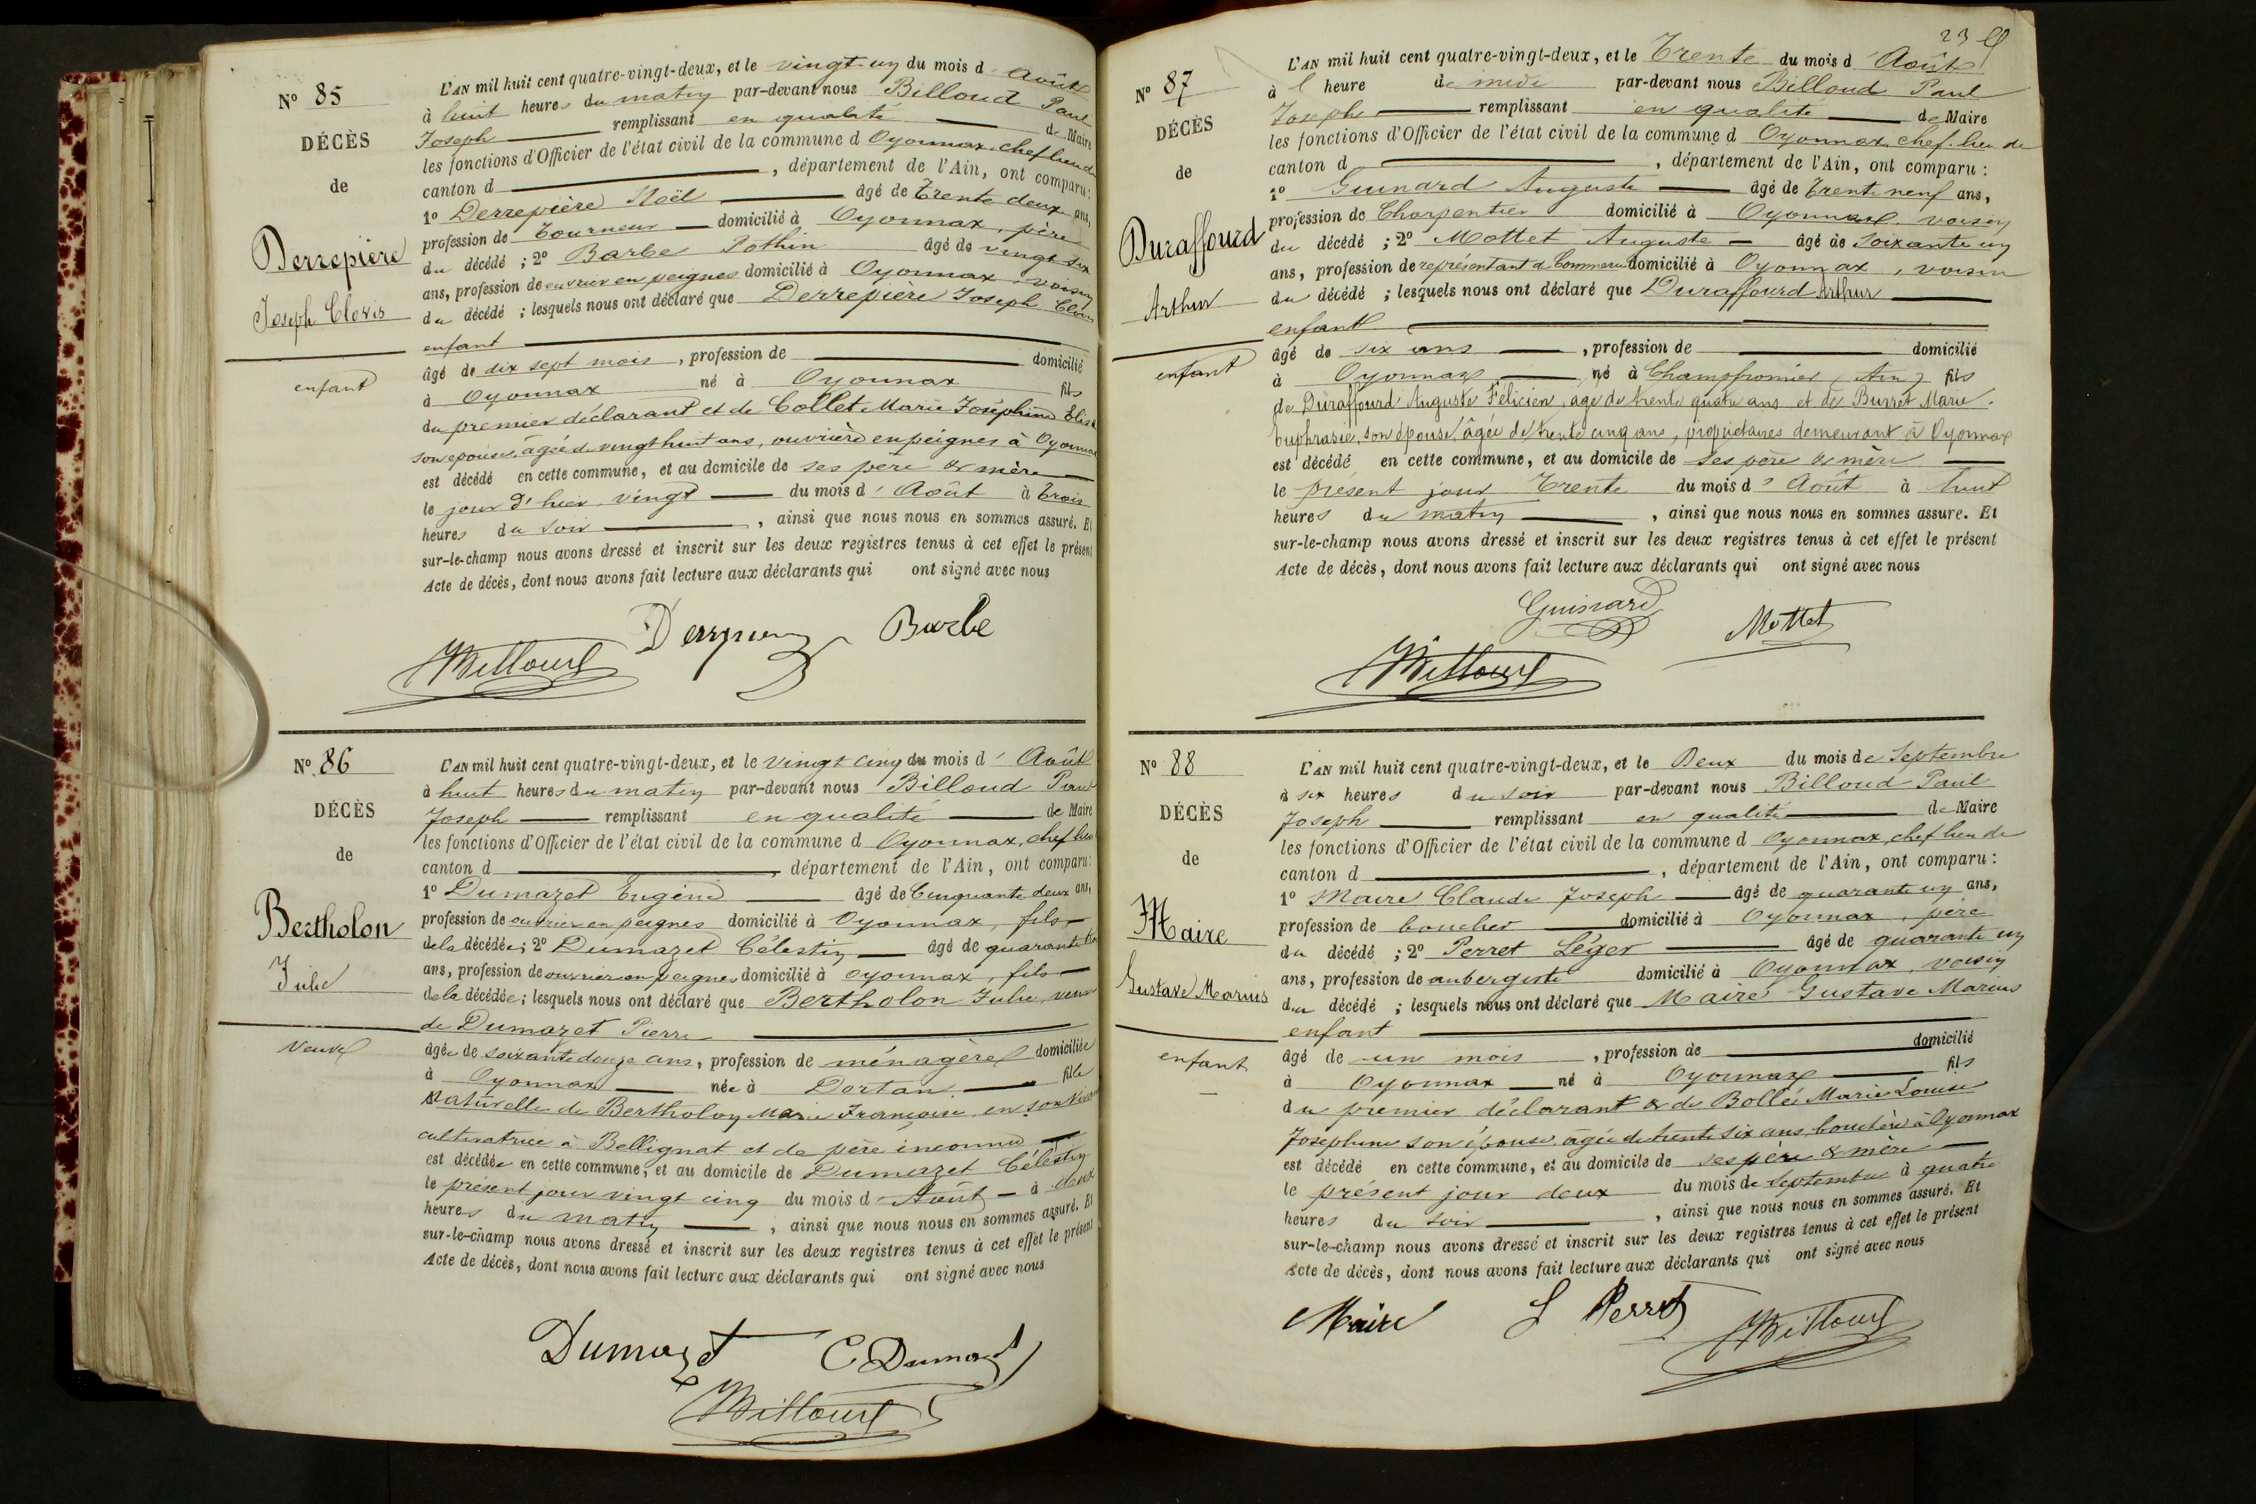 Nº 85
DÉCÈS
de
Derrepière
Joseph Clovis
enfant
L'AN mil huit cent quatre-vingt-deux, et le vingt-un du mois d'Août
à huit heures du matin par-devant nous Billoud Paul
Joseph remplissant en qualité de Maire
les fonctions d'Officier de l'état civil de la commune d Oyonnax, chef lieu de
canton d , département de l'Ain, ont comparu :
1º Derrepière Noël âgé de Trente deux ans,
profession de Tourneur domicilié à Oyonnax, père
du décédé ; 2º Barbe Pothin âgé de vingt six
ans, profession de ouvrier en peignes domicilié à Oyonnax, voisin
du décédé ; lesquels nous ont déclaré que Derrepière Joseph Clovis
enfant
âgé de dix sept mois , profession de domicilié
à Oyonnax né à Oyonnax fils
du premier déclarant et de Collet Marie Joséphine
son épouse, âgée de vingt huit ans, ouvrière en peignes à Oyonnax
est décédé en cette commune, et au domicile de ses père & mère
le jour d'hier, vingt du mois d'Août à trois
heures du soir , ainsi que nous nous en sommes assuré. Et
sur-le-champ nous avons dressé et inscrit sur les deux registres tenus à cet effet le présent
Acte de décès, dont nous avons fait lecture aux déclarants qui ont signé avec nous
Barbe
Billoud
Nº 86
DÉCÈS
de
Bertholon
Julie
veuve
L'AN mil huit cent quatre-vingt-deux, et le vingt cinq du mois d'Août
à huit heures du matin par-devant nous Billoud Paul
Joseph remplissant en qualité de Maire
les fonctions d'Officier de l'état civil de la commune d Oyonnax, chef lieu
canton d , département de l'Ain, ont comparu :
1º Dumazet Eugène âgé de Cinquante deux ans,
profession de ouvrier en peignes domicilié à Oyonnax, fils
de la décédée ; 2º Dumazet Célestin âgé de quarante
ans, profession de ouvrier en peignes domicilié à Oyonnax, fils
de la décédée ; lesquels nous ont déclaré que Bertholon Julie, veuve
de Dumazet Pierre
âgée de soixante douze ans, profession de ménagère domiciliée
à Oyonnax née à Dortan fille
naturelle de Bertholon Marie Françoise en son vivant
cultivatrice à Bellignat et de père inconnu
est décédée en cette commune, et au domicile de Dumazet Célestin
le présent jour vingt cinq du mois d'Août à deux
heures du matin , ainsi que nous nous en sommes assuré. Et
sur-le-champ nous avons dressé et inscrit sur les deux registres tenus à cet effet le présent
Acte de décès, dont nous avons fait lecture aux déclarants qui ont signé avec nous
Dumazet C Dumazet
Billoud
23
Nº 87
DÉCÈS
de
Duraffourd
Arthur
enfant
L'AN mil huit cent quatre-vingt-deux, et le Trente du mois d'Août
à l heure de midi par-devant nous Billoud Paul
Joseph remplissant en qualité de Maire
les fonctions d'Officier de l'état civil de la commune d Oyonnax, chef-lieu de
canton d , département de l'Ain, ont comparu :
1º Guinard Auguste âgé de trente neuf ans,
profession de Charpentier domicilié à Oyonnax, voisin
du décédé ; 2º Mottet Auguste âgé de soixante un
ans, profession de représentant de Commerce domicilié à Oyonnax, voisin
du décédé ; lesquels nous ont déclaré que Duraffourd Arthur
enfant
âgé de six ans , profession de domicilié
à Oyonnax né à Champfromier (Ain) fils
de Duraffourd Auguste Félicien, âgé de trente quatre ans et de Burret Marie
Euphrasie, son épouse, âgée de trente cinq ans, propriétaires demeurant à Oyonnax
est décédé en cette commune, et au domicile de ses père & mère
le présent jour Trente du mois d'Août à huit
heures du matin , ainsi que nous nous en sommes assuré. Et
sur-le-champ nous avons dressé et inscrit sur les deux registres tenus à cet effet le présent
Acte de décès, dont nous avons fait lecture aux déclarants qui ont signé avec nous
Guinard Mottet
Billoud
Nº 88
DÉCÈS
de
Maire
Gustave Marius
enfant
L'AN mil huit cent quatre-vingt-deux, et le Deux du mois de Septembre
à six heures du soir par-devant nous Billoud Paul
Joseph remplissant en qualité de Maire
les fonctions d'Officier de l'état civil de la commune d Oyonnax, chef lieu de
canton d , département de l'Ain, ont comparu :
1º Maire Claude Joseph âgé de quarante un ans,
profession de boucher domicilié à Oyonnax, père
du décédé ; 2º Perret Léger âgé de quarante un
ans, profession de aubergiste domicilié à Oyonnax, voisin
du décédé ; lesquels nous ont déclaré que Maire Gustave Marius
enfant
âgé de un mois , profession de domicilié
à Oyonnax né à Oyonnax fils
du premier déclarant & de Bollé Marie Louise
Josephine son épouse, âgée de trente six ans, bouchère à Oyonnax
est décédé en cette commune, et au domicile de ses père & mère
le présent jour deux du mois de septembre à quatre
heures du soir , ainsi que nous nous en sommes assuré. Et
sur-le-champ nous avons dressé et inscrit sur les deux registres tenus à cet effet le présent
Acte de décès, dont nous avons fait lecture aux déclarants qui ont signé avec nous
Maire L Perret Billoud